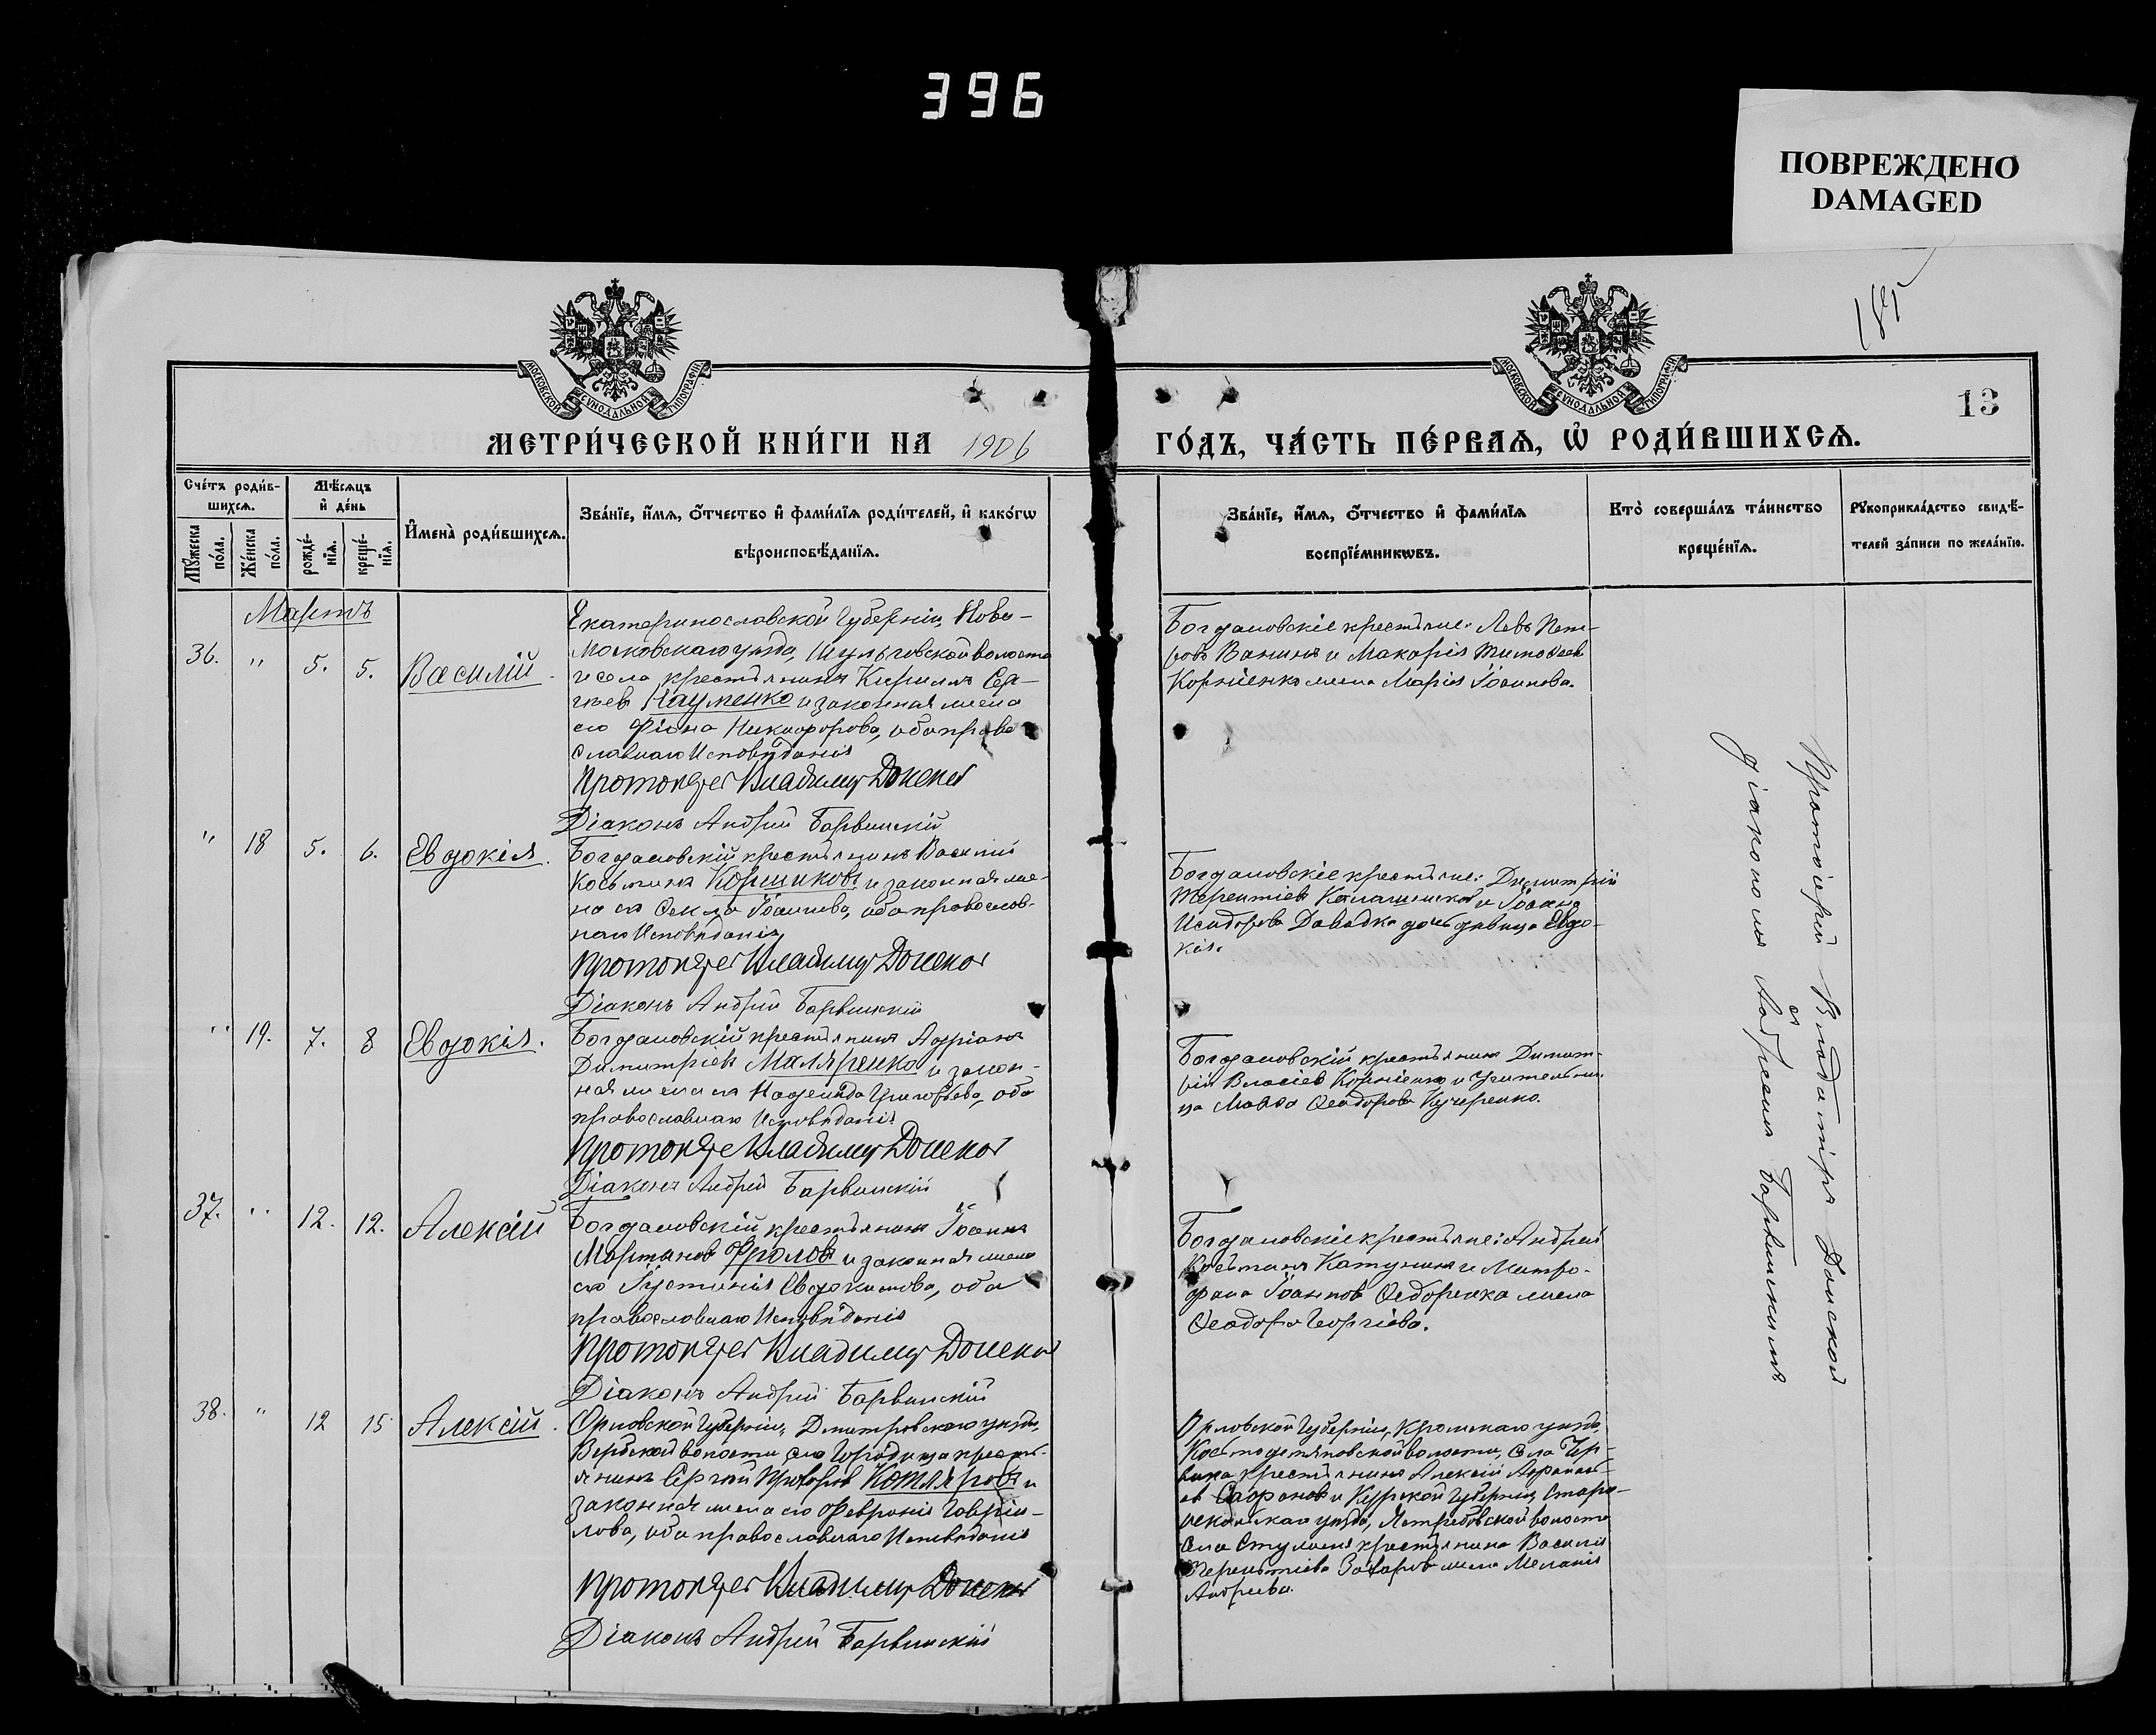 396
ПОВРЕЖДЕНО
DAMAGED
185
13
МОСКОВСКОЙ СѴНОДАЛЬНОЙ ТИПОГРАФІИ
МОСКОВСКОЙ СѴНОДАЛЬНОЙ ТИПОГРАФІИ
МЕТРИ́ЧЕСКОЙ КНИ́ГИ НА 1906 ГО́ДЪ, ЧА́СТЬ ПЕ́РВАѦ, Ѡ҆ РОДИ́ВШИХСѦ.
Сче́тъ роди́в-
шихсѧ.
Мꙋ́жеска
по́ла.
Же́нска
по́ла.
Мѣ́сѧцъ
и҆ де́нь
рожде́-
нїѧ.
креще́-
нїѧ.
И҆мена̀ роди́вшихсѧ.
Зва́нїе, и҆́мѧ, ѻ҆́тчество и҆ фами́лїѧ роди́телей, и҆ како́гѡ
вѣроисповѣ́данїѧ.
Зва́нїе, и҆́мѧ, ѻ҆́тчество и҆ фами́лїѧ
воспрїе́мникѡвъ.
Кто̀ соверша́лъ та́инство
креще́нїѧ.
Рꙋкоприкла́дство свидѣ́-
телей за́писи по жела́нїю.
Мартъ
36. " 5. 5. Василій.
Екатеринославской Губерніи, Ново-
московскаго уѣзда, Шульговской волости
и села крестьянинъ Кириллъ Сер-
гѣевъ Науменко и законная жена
его Фіона Никифорова, оба право
славнаго Исповѣданія
Протоіерей Владимір Донской
Діаконъ Андрей Барвинскій
Богдановскіе крестьяне: Левъ Пет-
ровъ Ванинъ и Макарія Тимоѳеева
Корніенко жена Марія Іоаннова.
" 18 5. 6. Евдокія.
Богдановскій крестьянинъ Василій
Косьминъ Коршиковъ и законная же-
на его Іоаннова, оба православ-
наго Исповѣданія
Протоіерей Владимір Донской
Діаконъ Андрей Барвинскій
Богдановскіе крестьяне: Димитрій
Терентіевъ Калашников и Іоанна
Исидорова Давидка дочь дѣвица Евдо-
кія.
" 19. 7. 8 Евдокія.
Богдановскій крестьянинъ Адріанъ
Димитріевъ Маляренко и закон-
ная жена его Надежда Григорьева, оба
православнаго Исповѣданія
Протоіерей Владимір Донской
Діаконъ Андрей Барвинскій
Богдановскій крестьянинъ Димит-
рій Власіевъ Корніенко и учительни-
ца Ѳеодорова Кучеренко.
37. " 12. 12. Алексій
Богдановскій крестьянинъ Іоаннъ
Мартиновъ Фроловъ и законная жена
его Іустинія Евдокимова, оба
православнаго Исповѣданія
Протоіерей Владимір Донской
Діаконъ Андрей Барвинскій
Богдановскіе крестьяне: Андрей
Косьминъ Катунинъ и Митро-
фана Іоаннова Ѳедоренка жена
Ѳеодора Георгіева.
38. " 12 15 Алексій.
Орловской Губерніи, Дмитровскаго уѣзда,
волости села Городища кресть-
янинъ Сергій Прохоровъ Котляровъ и
законная жена его Февронія Гавріи-
лова, оба православнаго Исповѣданія
Протоіерей Владимір Донской
Діаконъ Андрей Барвинскій
Орловской Губерніи, Кромскаго уѣзда,
волости, села
крестьянинъ Алексій Афанась-
евъ Сафоновъ и Курской Губерніи, Старо-
оскольскаго уѣзда, Ястребовской волости
села крестьянина Василія
Терентіева Захарова жена Меланія
Андреева.
Протоіерей Владиміръ Донской
съ
діакономъ Андреемъ Барвинскимъ